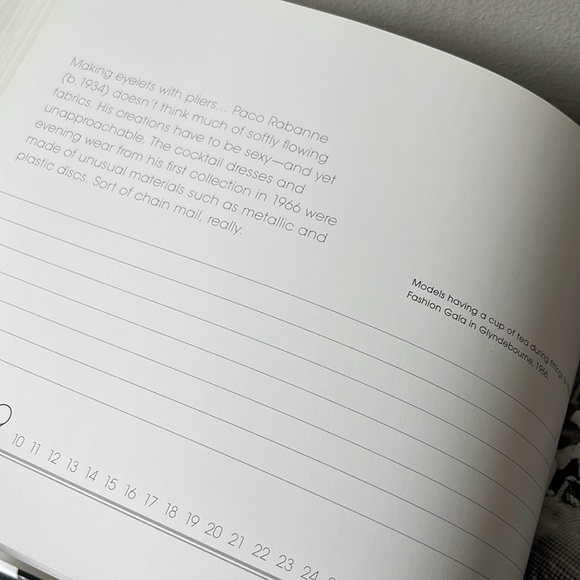 Making eyelets with pliers... Paco Rabanne
(b. 1934) doesn't think much of softly flowing
fabrics. His creations have to be sexy—and yet
unapproachable. The cocktail dresses and
evening wear from his first collection in 1966 were
made of unusual materials such as metallic and
plastic discs. Sort of chain mail, really.
Models having a cup of tea during fittings
Fashion Gala in Glyndebourne, 1966.
10 11 12 13 14 15 16 17 18 19 20 21 22 23 24